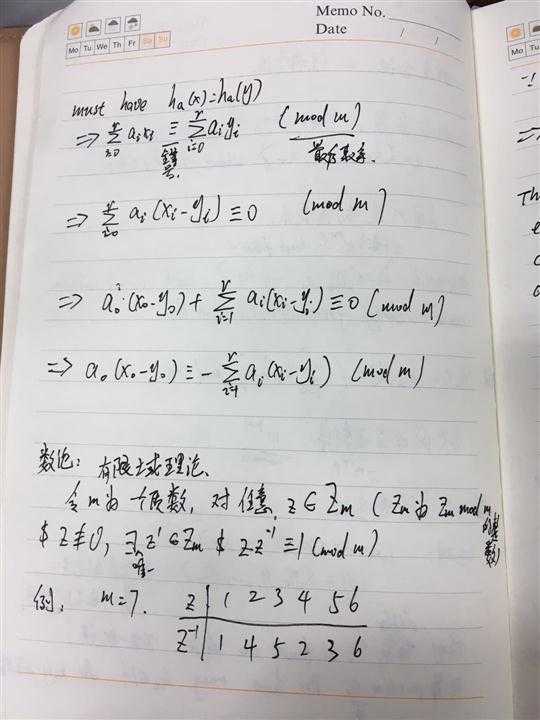 Memo No.
Mo Tu We Th Fr Sa Su
Date / /
Mo Tu
must have ha(x)=ha(y)
⇒ Σ_{i=0}^{r} aᵢxᵢ ≡ Σ_{i=0}^{r} aᵢyᵢ (mod m)
⇒ Σ_{i=0}^{r} aᵢ(xᵢ-yᵢ) ≡ 0 (mod m)
⇒ a₀(x₀-y₀) + Σ_{i=1}^{r} aᵢ(xᵢ-yᵢ) ≡ 0 (mod m)
⇒ a₀(x₀-y₀) ≡ - Σ_{i=1}^{r} aᵢ(xᵢ-yᵢ) (mod m)
数论: 有限域理论.
令m为一个质数, 对任意 z∈Zm (Zm为Zm mod m的整数)
& z≢0, ∃唯一 z⁻¹∈Zm & z·z⁻¹≡1 (mod m)
例: m=7. z | 1 2 3 4 5 6
z⁻¹ | 1 4 5 2 3 6
Th